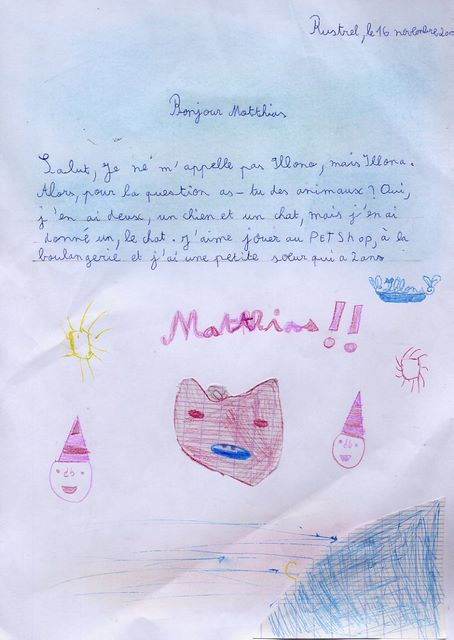 Rustrel, le 16 novembre
Bonjour Matthias
Salut, je ne m'appelle pas Illono, mais Illona.
Alors, pour la question as-tu des animaux ? Oui,
j'en ai deux, un chien et un chat, mais j'en ai
donné un, le chat. J'aime jouer au PET Shop, à la
boulangerie et j'ai une petite sœur qui a 2 ans
Illona
Matthias !!